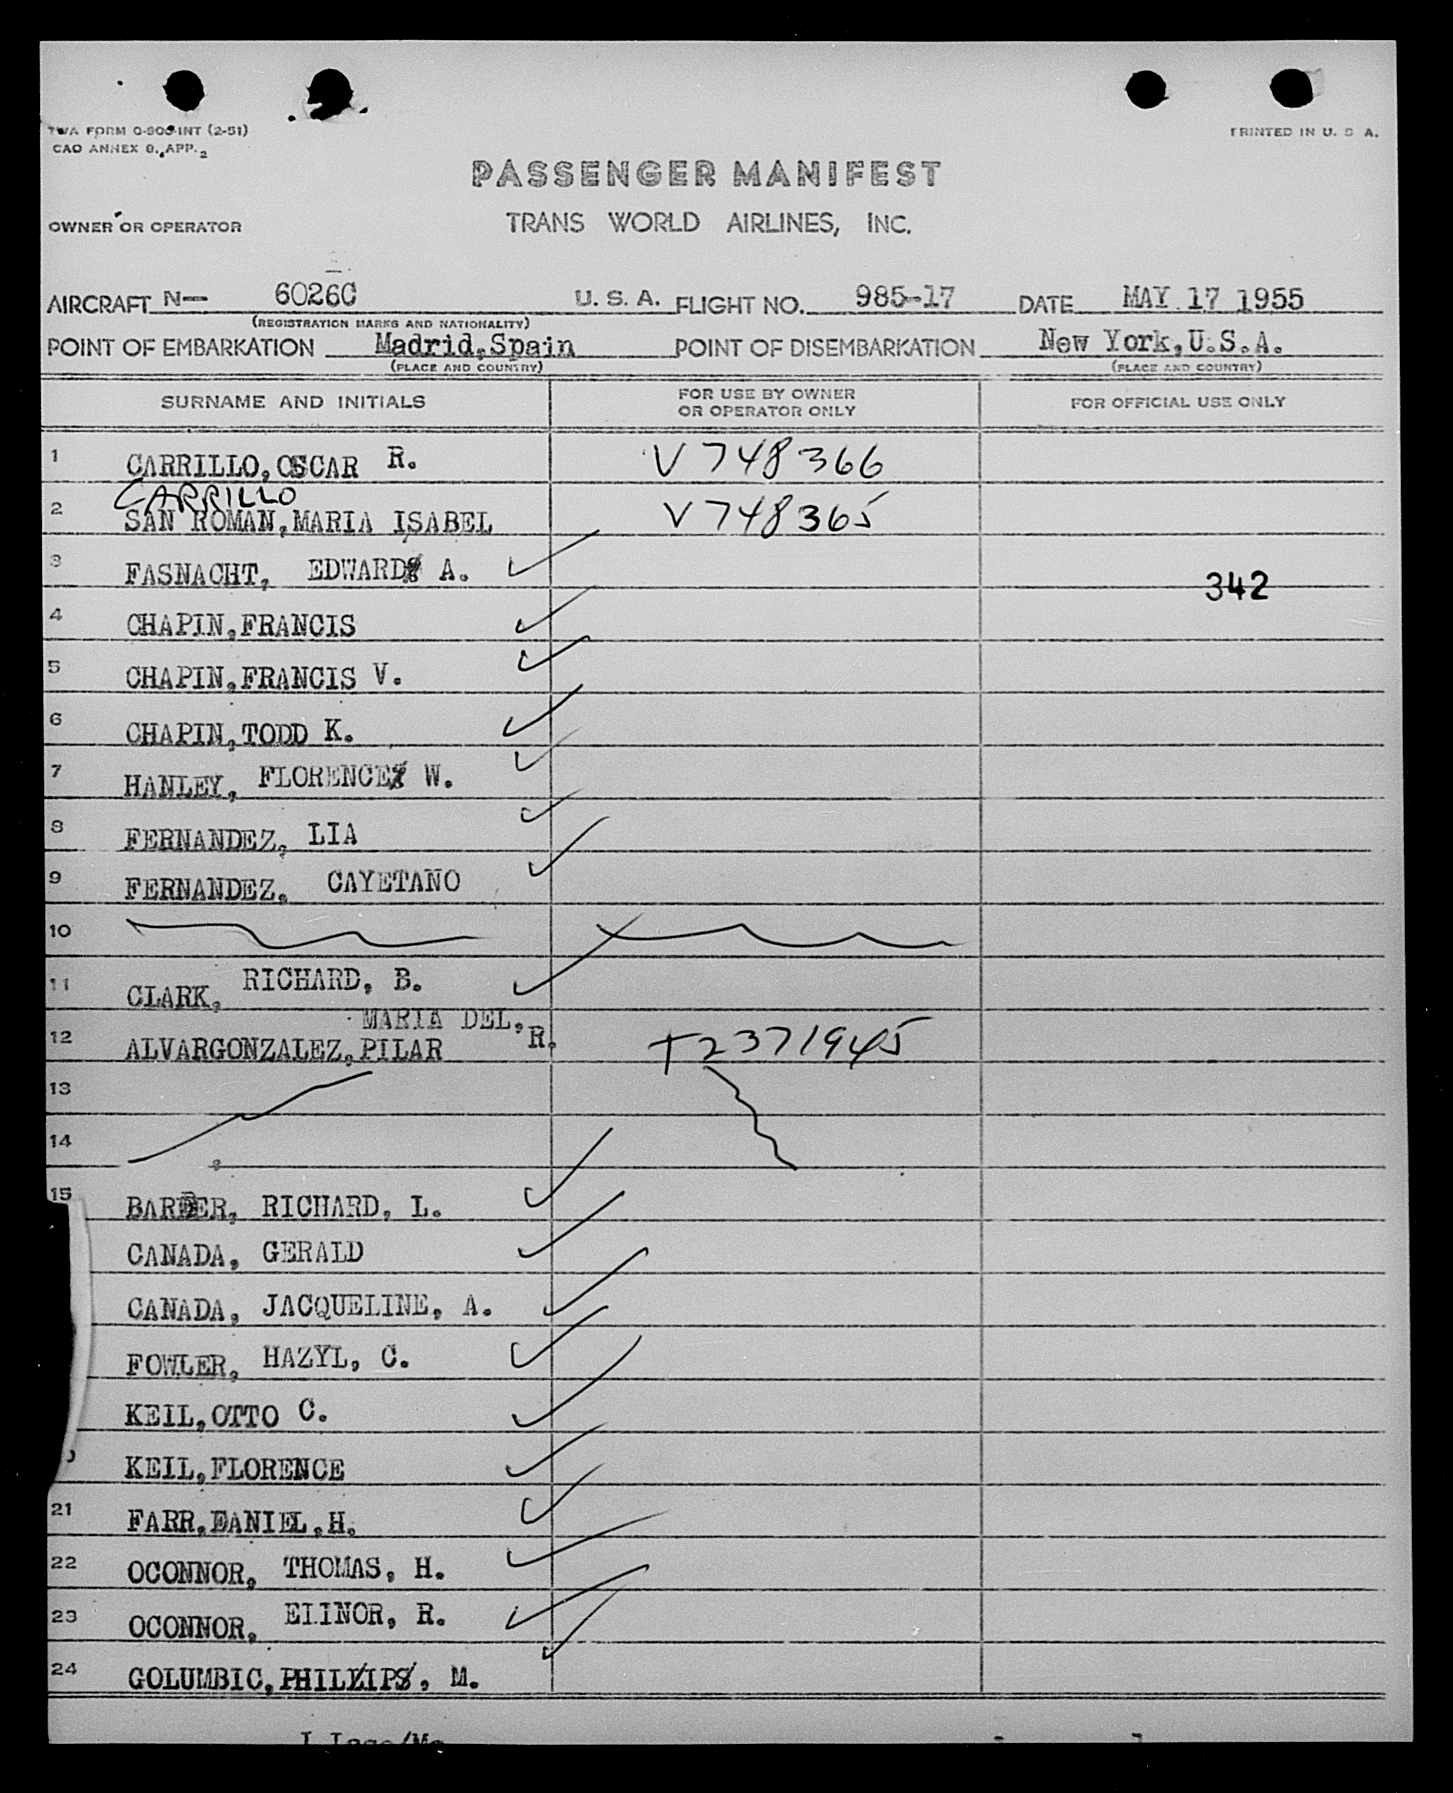 TWA FORM O-908-INT (2-51)
CAO ANNEX 9, APP. 2
PRINTED IN U. S. A.
PASSENGER MANIFEST
OWNER OR OPERATOR TRANS WORLD AIRLINES, INC.
AIRCRAFT N— 6026C U. S. A. FLIGHT NO. 985-17 DATE MAY 17 1955
(REGISTRATION MARKS AND NATIONALITY)
POINT OF EMBARKATION Madrid,Spain POINT OF DISEMBARKATION New York,U.S.A.
(PLACE AND COUNTRY) (PLACE AND COUNTRY)
SURNAME AND INITIALS FOR USE BY OWNER OR OPERATOR ONLY FOR OFFICIAL USE ONLY
1 CARRILLO,OSCAR R. V748366
CARRILLO
2 SAN ROMAN,MARIA ISABEL V748365
3 FASNACHT, EDWARD A.
342
4 CHAPIN,FRANCIS
5 CHAPIN,FRANCIS V.
6 CHAPIN,TODD K.
7 HANLEY, FLORENCE W.
8 FERNANDEZ, LIA
9 FERNANDEZ, CAYETANO
10
11 CLARK, RICHARD, B.
MARIA DEL,
12 ALVARGONZALEZ,PILAR R. T2371945
13
14
15 BARBER, RICHARD, L.
CANADA, GERALD
CANADA, JACQUELINE, A.
FOWLER, HAZYL, C.
KEIL,OTTO C.
KEIL,FLORENCE
21 FARR,DANIEL,H.
22 OCONNOR, THOMAS, H.
23 OCONNOR, ELINOR, R.
24 GOLUMBIC,PHILIP, M.